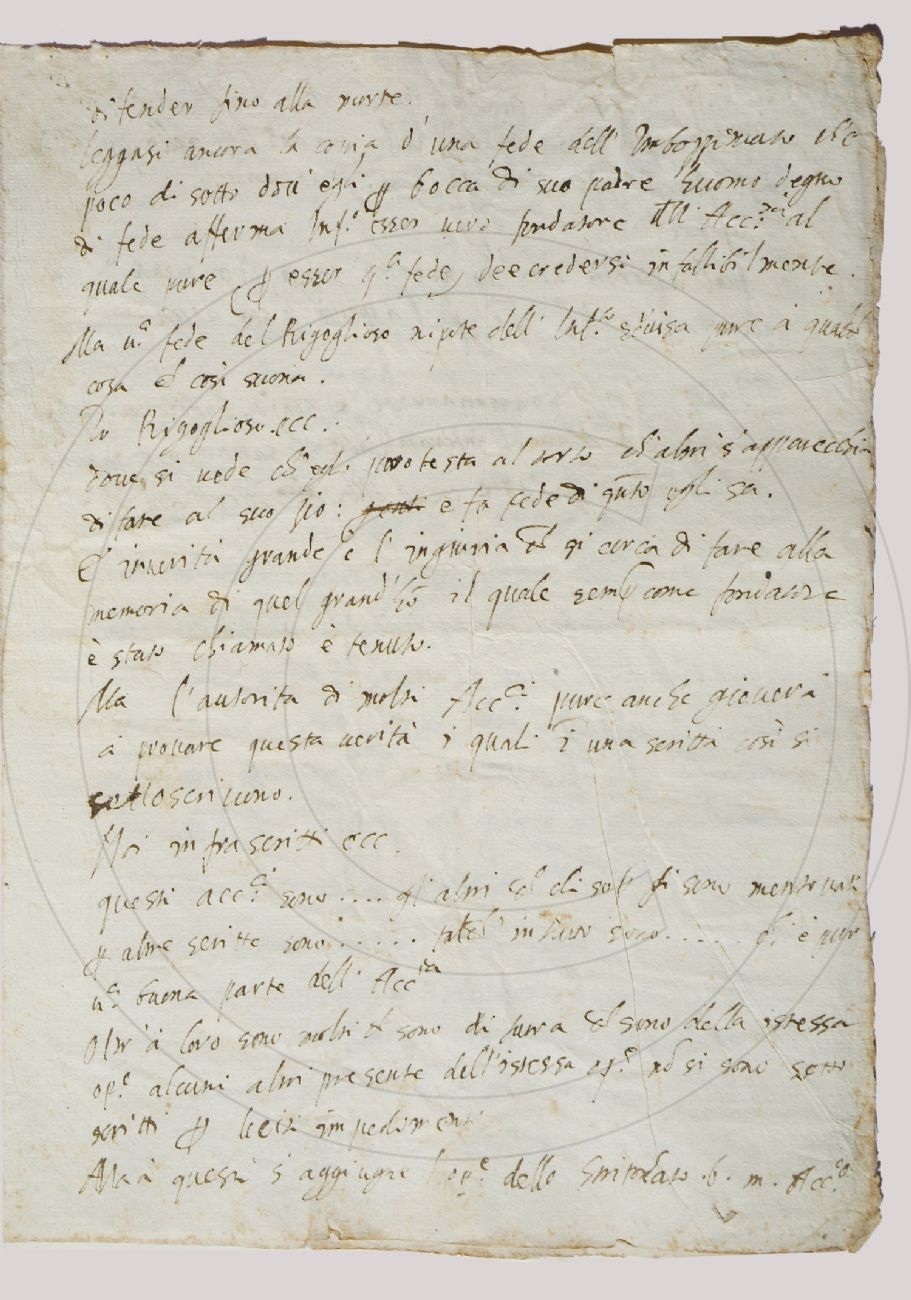 difender fino alla morte.
leggasi ancora la copia d'una fede dell' Imbozzimato ch'è
poco di sotto dov' egli ꝑ bocca di suo padre huomo degno
di fede afferma Inf.º esser vero fondatore dll' Acc.ia al
quale pure, ꝑ esser q.a fede, dee credersi infallibilmente.
Ma u.a fede del Rigoglioso nipote dell' Inf.º pure à qualche
cosa et così suona.
Io Rigoglioso. ecc.:
dove si vede ch'egli protesta al torto ch'altri s'apparecchia
di fare al suo zio: e fa fede di qnto egli sa.
E inverità grande è l'ingiuria ch si cerca di fare alla
memoria di quel grand'ho il quale semp come fondatore
è stato chiamato è tenuto.
Ma l'autorità di molti Acc.ci pure anche gioverà
à provare questa verità i quali ī una scritta così si
sottoscrivono.
Noi infrascritti ecc.
questi acc.ci sono .... gl'altri ch di sop.a si sono mentovati
ꝑ altre scritte sono ...... talch' in tutto sono ..... ch' è pur
u.a buona parte dell' Acc.ia
Oltr' à loro sono molti ch sono di fuora ch sono della istessa
op.e alcuni altri presente dell'istessa op.e nō si sono sotto
scritti ꝑ leciti impedimenti
Ma à questi s'aggiugne l'op.e dello Stritolato b. m. Acc.co